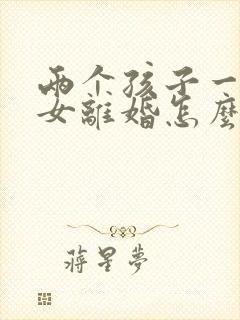 两个孩子一
女離婚怎麼
蔣星夢